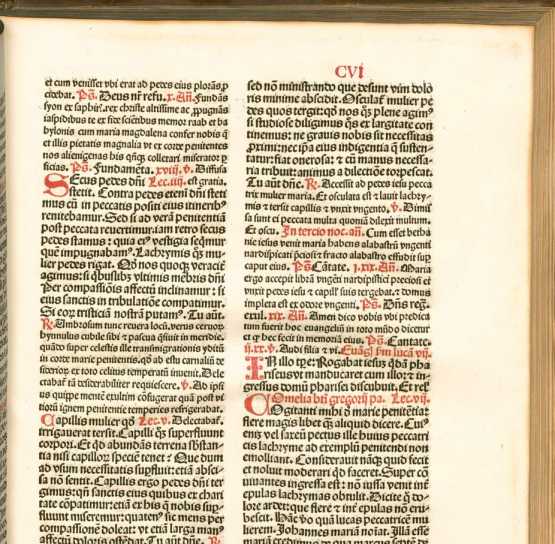 CVI
et cum venisset vbi erat ad pedes eius plorās p
cidebat. Pṡ. Deus nr̄ refu. x. Añ. Fundās
syon ex saphiris. rex christe altissime ac ꝓpugnās
iaspidibus te ex fire scientibus memor raab et ba
bylonis cum maria magdalena confer nobis q̄
et illis pietatis magnalia vt ex corde penitentes
nos alienigenas his qñꝫ colletari miserator ꝓ
ficias. Pṡ. Fundamēta. xviij. ℣. Diffusa
Secus pedes dñi Lec. iiij. est gratia.
stetit. Contra pedes etenī dñi steti
mus cū in peccatis positi eius itineribꝰ
renitebamur. Sed si ad verā penitentiā
post peccata reuertimur. iam retro secus
pedes stamus: quia eiꝰ vestigia seqmur
quē impugnabamꝰ. Lachrymis qꝫ mu-
lier pedes rigat. Qd̄ nos quoqꝫ veraciē
agimus: si qbuslibꝫ vltimis mēbris dñi
per compassiōis affectū inclinamur: si
eius sanctis in tribulatiōe compatimur.
Si eoꝝ tristiciā nostrā putamꝰ. Tu aūt.
℟. Ambrosum tunc reuera locū. verus ceruorꝫ
hynnulus
cubile sibi ⁊ pascua q̄siuit in meridie.
quādo super celestis ille transmigrationis yditū
in corde marie penitentis. qd̄ ad estu carnaliū de
siderioꝝ ex toto celitus temperatū inuenit. Dele
ctabat̄ tā desiderabiliter requiescere. ℣. Ad ipsi
us quippe mentē exulem cōfugerat quā post vi
tioꝝ ignem penitentie temperies refrigerabat.
Capillis mulier qꝫ Lec. v. Delectabat̄.
irrigauerat tersit. Capilli qꝫ superfluunt
corpori. Et qd̄ abundās terrena sbstan-
tia nisi capilloꝝ speciē tenet? Que dum
ad vsum necessitatis supfluit: etiā absci-
sa nō sentit. Capillis ergo pedes dñi ter
gimus: qñ sanctis eius quibus ex chari
tate cōpatimur: etiā ex his q̄ nobis sup-
fluunt miseremur: quatenꝰ sic mens per
compassionē doleat: vt etiā larga manꝰ
affectū doloris ostēdat. Tu aūt dñe. ℟.
sed nō ministrando que desunt vim dolo
ris minime abscidit. Osculat̄ mulier pe
des quos tergit: qd̄ nos qꝫ plene agimꝰ
si studiose diligimus qs ex largitate con
tinemus: ne grauis nobis sit necessitas
ꝓximi: nec ipa eius indigentia q̄ susten-
tatur: fiat onerosa: ⁊ cū manus necessa-
ria tribuit: animus a dilectiōe torpescat.
Tu aūt dñe. ℟. Accessit ad pedes iesu pecca
trix mulier maria. Et osculata est ⁊ lauit lachry-
mis ⁊ tersit capillis ⁊ vnxit vngento. ℣. Dimis
sa sunt ei peccata multa quoniā dilexit multum.
Et oscu. In tercio noc. añ. Cum esset betha
nie iesus venit maria habens alabastrū vngenti
nardispicati p̄ciosi ⁊ fracto alabastro effudit sup
caput eius. Pṡ. Cātate. j. xix. Añ. Maria
ergo accepit librā vngēti nardipistici preciosi et
vnxit pedes iesu ⁊ capill̄ suis tergebat. ⁊ domus
impleta est ex odore vngenti. Pṡ. Dñs reg.
exul. xix. Añ. Amen dico vobis vbi predica
tum fuerit hoc euangeliū in toto mūdo dicetur
et qꝫ hec fecit in memoriā eius. Pṡ. Cantate.
ij. xx. ℣. Audi filia ⁊ vi. Euāgꝫ scd̄m lucā vij.
In illo tp̄e: Rogabat iesus qdā pha
riseus vt manducaret cum illo: ⁊ in-
gressus domū pharisei discubuit. Et rel̄.
Omelia bti gregorij pa. Lec. vij.
Cogitanti mihi d̄ marie penitētia:
flere magis libet qꝫ aliquid dicere. Cuiꝰ
eniꝫ vel saxeū pectus ille huius peccatri
cis lachryme ad exemplū penitendi non
emolliant. Considerauit nāqꝫ quid fecit
et noluit moderari qd̄ faceret. Super cō
viuantes ingressa est: nō iussa venit int̄
epulas lachrymas obtulit. Discite q̄ do-
lore ardet: que flere ⁊ int̄ epulas nō eru-
bescit. Hāc vo quā lucas peccatricē mu
lierem. Johannes mariā noiat. Illā esse
mariā credimus de qua marcus septē de